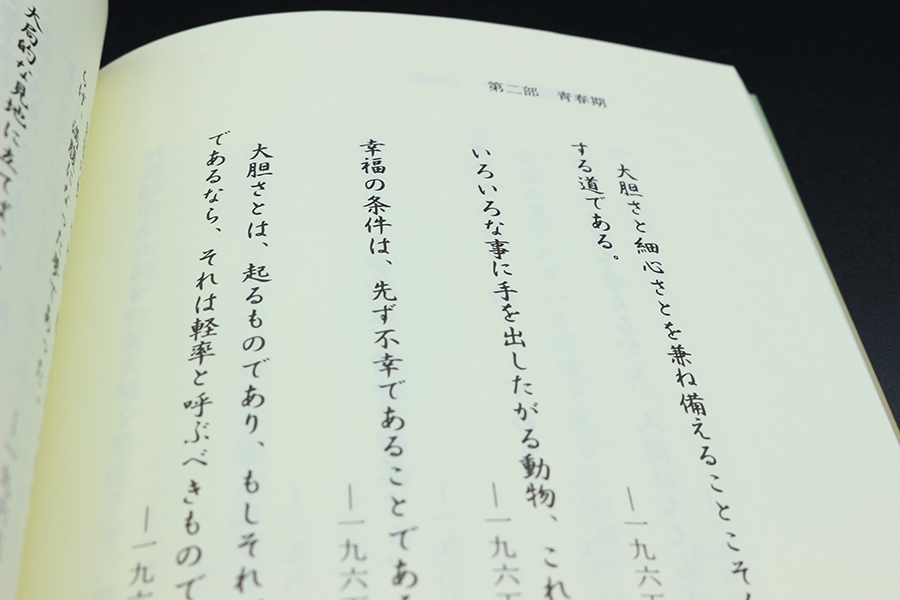 第二部 青春期
大胆さと細心さとを兼ね備えることこそ
する道である。
—一九六
いろいろな事に手を出したがる動物、これ
—一九六
幸福の条件は、先ず不幸であることである
—一九六
大胆さとは、起るものであり、もしそれ
であるなら、それは軽率と呼ぶべきもので
—一九六
大局的な見地に立てば、